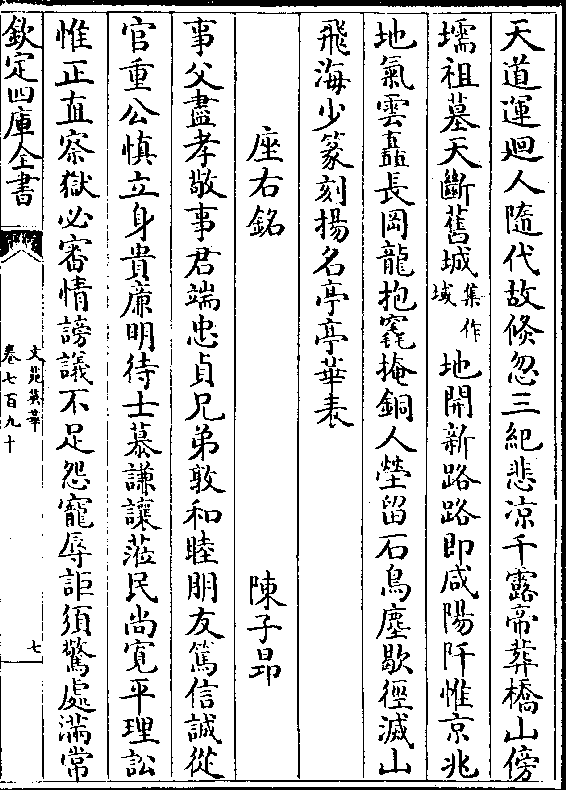 天道運迴人隨代故倐忽三紀悲凉千露帝葬橋山傍
壖祖墓天斷舊城集作域地開新路路即咸陽阡惟京兆
地氣雲矗長岡龍抱窕掩銅人塋留石鳥塵歇徑滅山
飛海少篆刻揚名亭亭華表
座右銘 陳子昂
事父盡孝敬事君端忠貞兄弟敦和睦朋友篤信誠從
官重公慎立身貴廉明待士慕謙讓蒞民尚寛平理訟
惟正直察獄必審情謗議不足怨寵辱詎須驚處滿常
欽定四庫全書
文苑英華
卷七百九十
七